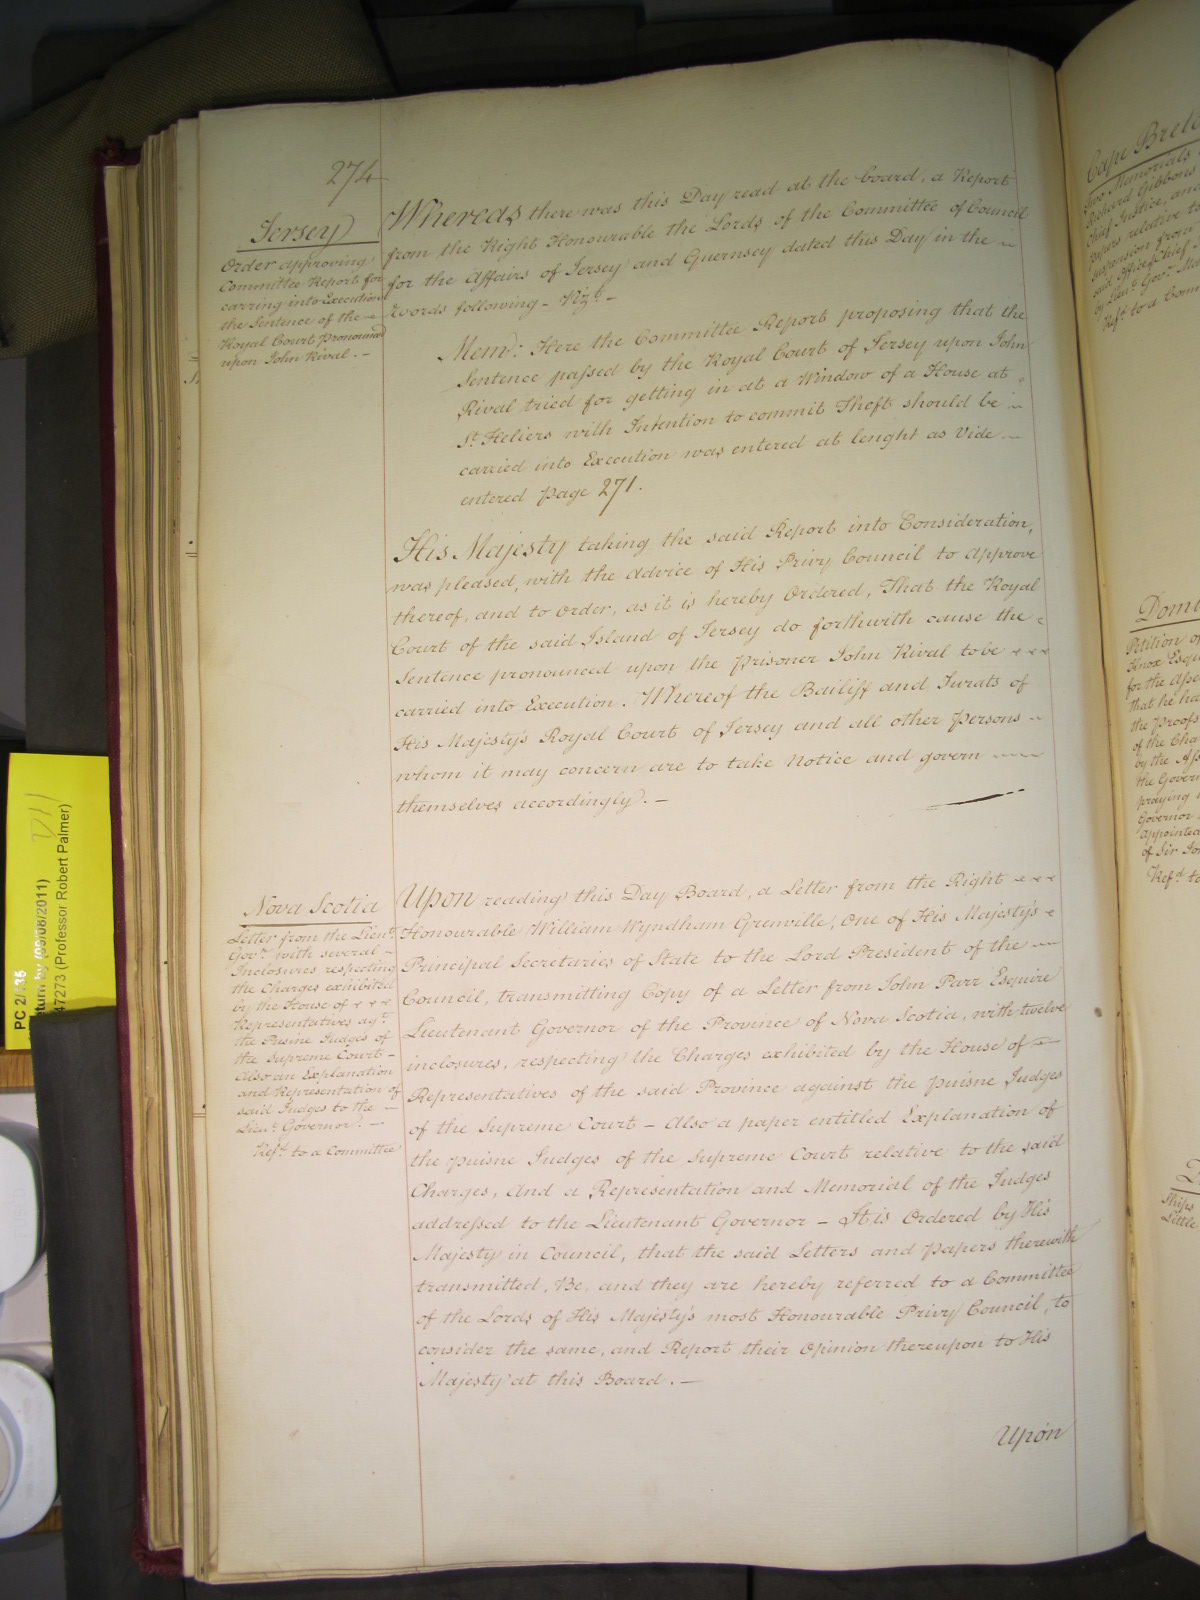 274
Jersey
Order approving
Committee Report for
carring into Execution
the Sentence of the
Royal Court pronounced
upon John Rival. -
Whereas there was this Day read at the board, a Report
from the Right Honourable the Lords of the Committee of Council
for the Affairs of Jersey and Guernsey dated this Day in the
words following - Vizt. -
Memd: Here the Committee Report proposing that the
Sentence passed by the Royal Court of Jersey upon John
Rival tried for getting in at a Window of a House at
St. Heliers with Intention to commit Theft should be
carried into Execution was entered at lenght as Vide
entered page 271.
His Majesty taking the said Report into Consideration,
was pleased, with the advice of His Privy Council to approve
thereof, and to order, as it is hereby Ordered, That the Royal
Court of the said Island of Jersey do forthwith cause the
Sentence pronounced upon the prisoner John Rival to be
carried into Execution. Whereof the Bailiff and Jurats of
His Majesty's Royal Court of Jersey and all other persons
whom it may concern are to take Notice and govern
themselves accordingly. -
Nova Scotia
Letter from the Lieut.
Govr. with several
Inclosures respecting
the Charges exhibited
by the House of
Representatives agt.
the Puisne Judges of
the Supreme Court -
Also an Explanation
and Representation of
said Judges to the
Lieut. Governor. -
Refd. to a Committee
Upon reading this Day Board, a Letter from the Right
Honourable William Wyndham Grenville, One of His Majesty's
Principal Secretaries of State to the Lord President of the
Council, transmitting Copy of a Letter from John Parr Esquire
Lieutenant Governor of the Province of Nova Scotia, with twelve
inclosures, respecting the Charges exhibited by the House of
Representatives of the said Province against the puisne Judges
of the Supreme Court - Also a paper entitled Explanation of
the puisne Judges of the Supreme Court relative to the said
Charges, And a Representation and Memorial of the Judges
addressed to the Lieutenant Governor - It is Ordered by His
Majesty in Council, that the said Letters and papers therewith
transmitted, Be, and they are hereby referred to a Committee
of the Lords of His Majesty's most Honourable Privy Council, to
consider the same, and Report their Opinion thereupon to His
Majesty at this Board. -
Upon
Cape
Two Memorials
Richard Gibbons
Chief Justice, and
papers relative to
suspension from
said Office of Chief
by Lieut. Govr.
Refd. to a Com
Petition of
Knox Esqr
for the Asse
that he ha
the proofs
of the Cha
by the Ass
the Govern
praying
Governor
appointed
of Sir Jo
Refd. to
Ships
Little
PC 2/135
turn by (09/08/2011)
47273 (Professor Robert Palmer)